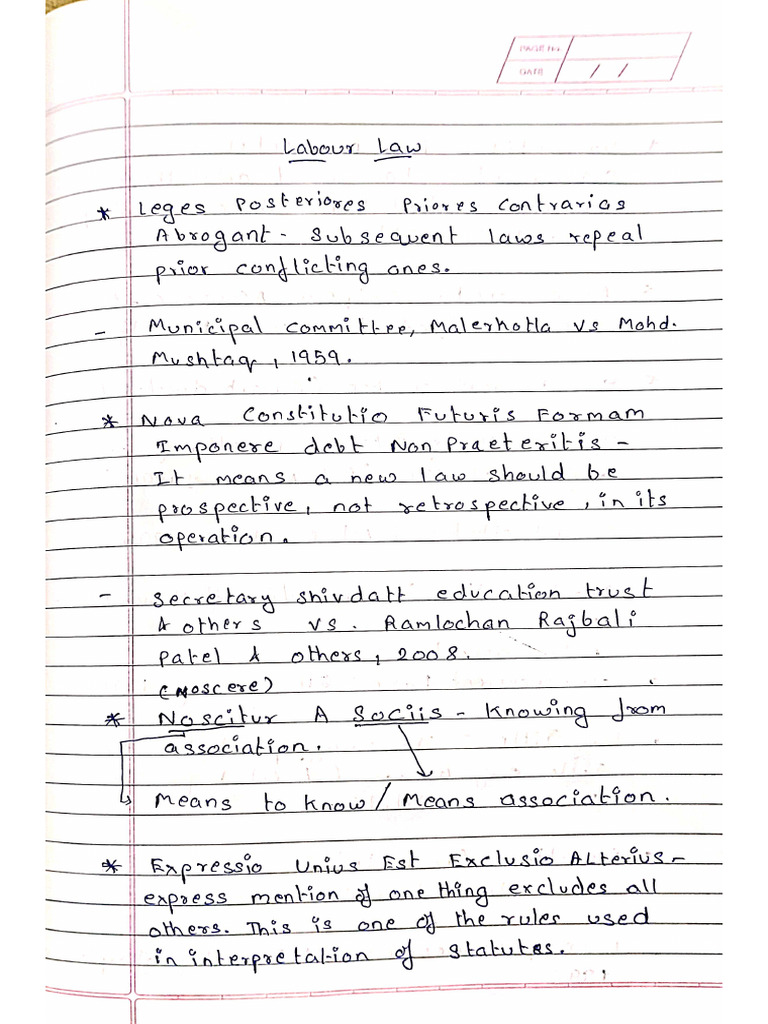 PAGE No.
DATE / /
Labour Law
* Leges Posteriores Priores Contrarias
Abrogant - Subsequent laws repeal
prior conflicting ones.
- Municipal Committee, Malerhotla vs Mohd.
Mushtaq, 1959.
* Nova Constitutio Futuris Formam
Imponere debt Non Praeteritis -
It means a new law should be
prospective, not retrospective, in its
operation.
- Secretary Shivdatt education trust
& others vs. Ramlochan Rajbali
Patel & others, 2008.
(Noscere)
* Noscitur A Sociis - Knowing from
association.
Means to know / Means association.
* Expressio Unius Est Exclusio Alterius -
express mention of one thing excludes all
others. This is one of the rules used
in interpretation of statutes.